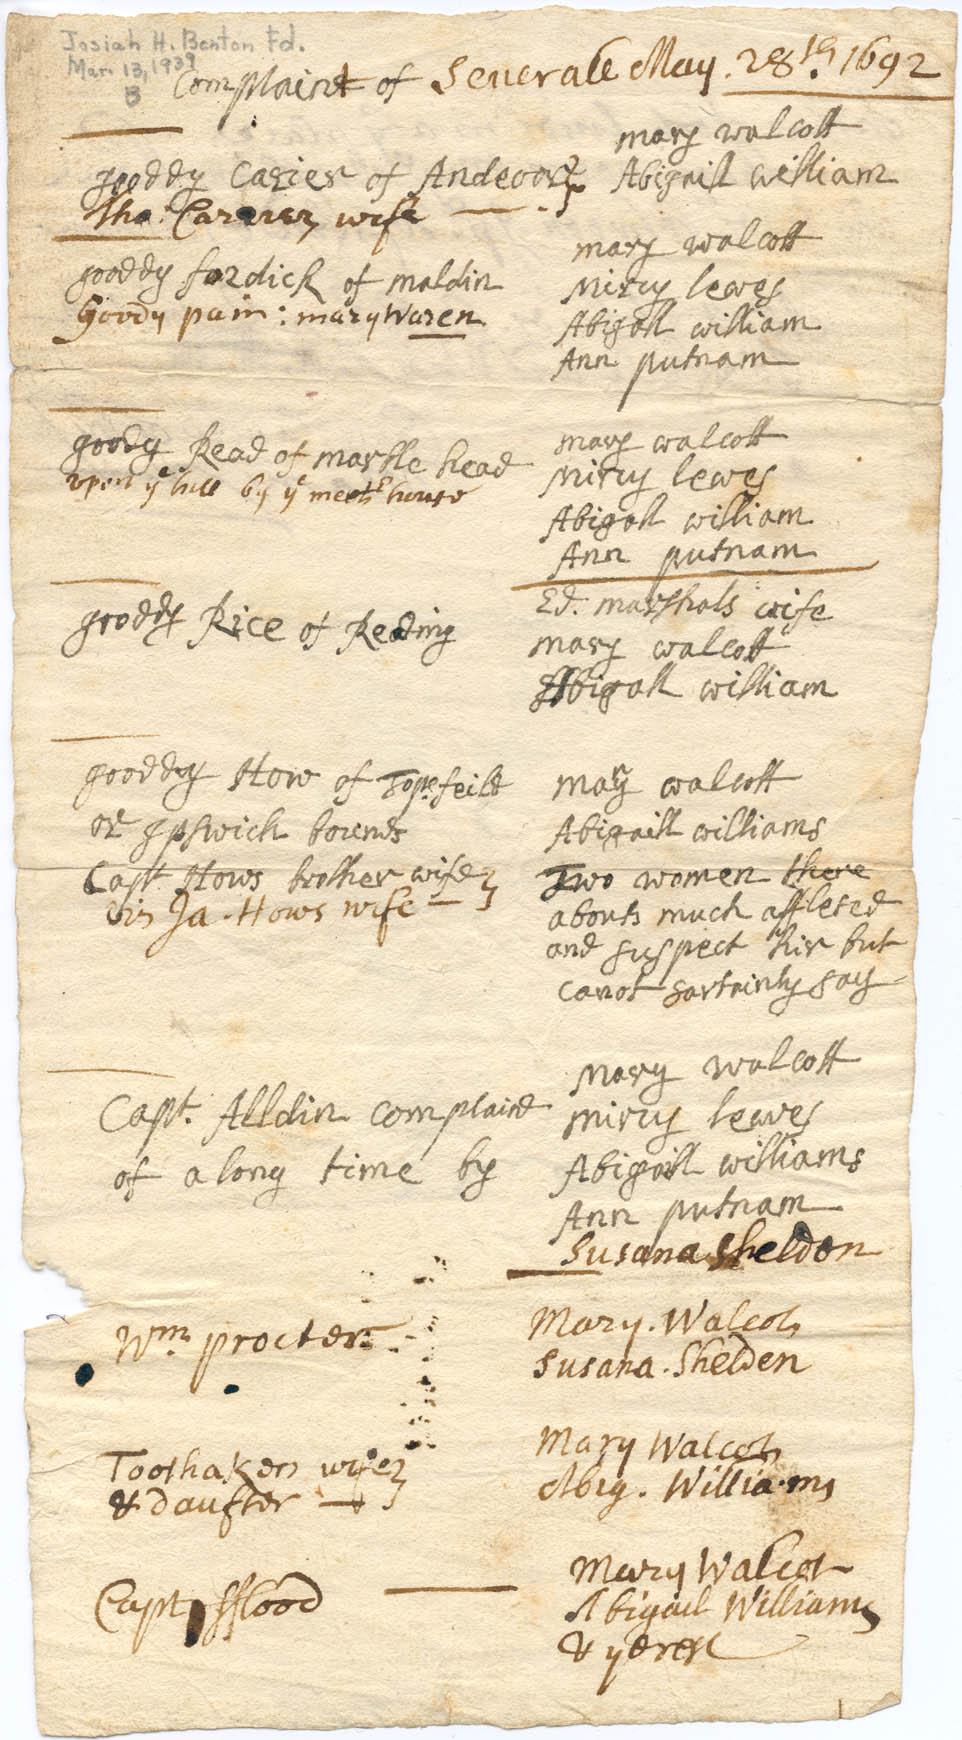 Josiah H. Benton Fd.
Mar. 13, 1939
B
Complaint of Severale May. 28th 1692
gooddy Carier of Andevor
Tho: Carrier, wife
mary walcott
Abigaill william
gooddy fordick of maldin
Goody pain: mary Waren
mary walcott
mircy lewes
Abigall william
Ann putnam
goody Read of marble head
upon ye hill by ye meeting house
mary walcott
mircy lewes
Abigall william
Ann putnam
goody Rice of Reding
Ed: marshals wife
mary walcott
Abigall william
gooddy How of Topsfeild
or Ipswich bounds
Capt Hows brother wife
Ja. Hows wife
mary walcott
Abigaill williams
Two women there
abouts much afleted
and suspect hir but
canot sartainly say
Capt. Alldin complaind
of a long time by
mary walcott
mircy lewes
Abigaill williams
Ann putnam
Susana Sheldon
Wm. procter
Mary. Walcot
Susana. Shelden
Toothakers wife
& daufter
Mary Walcot
Abig. Williams
Capt fflood
Mary Walcot
Abigail Williams
& ye rest